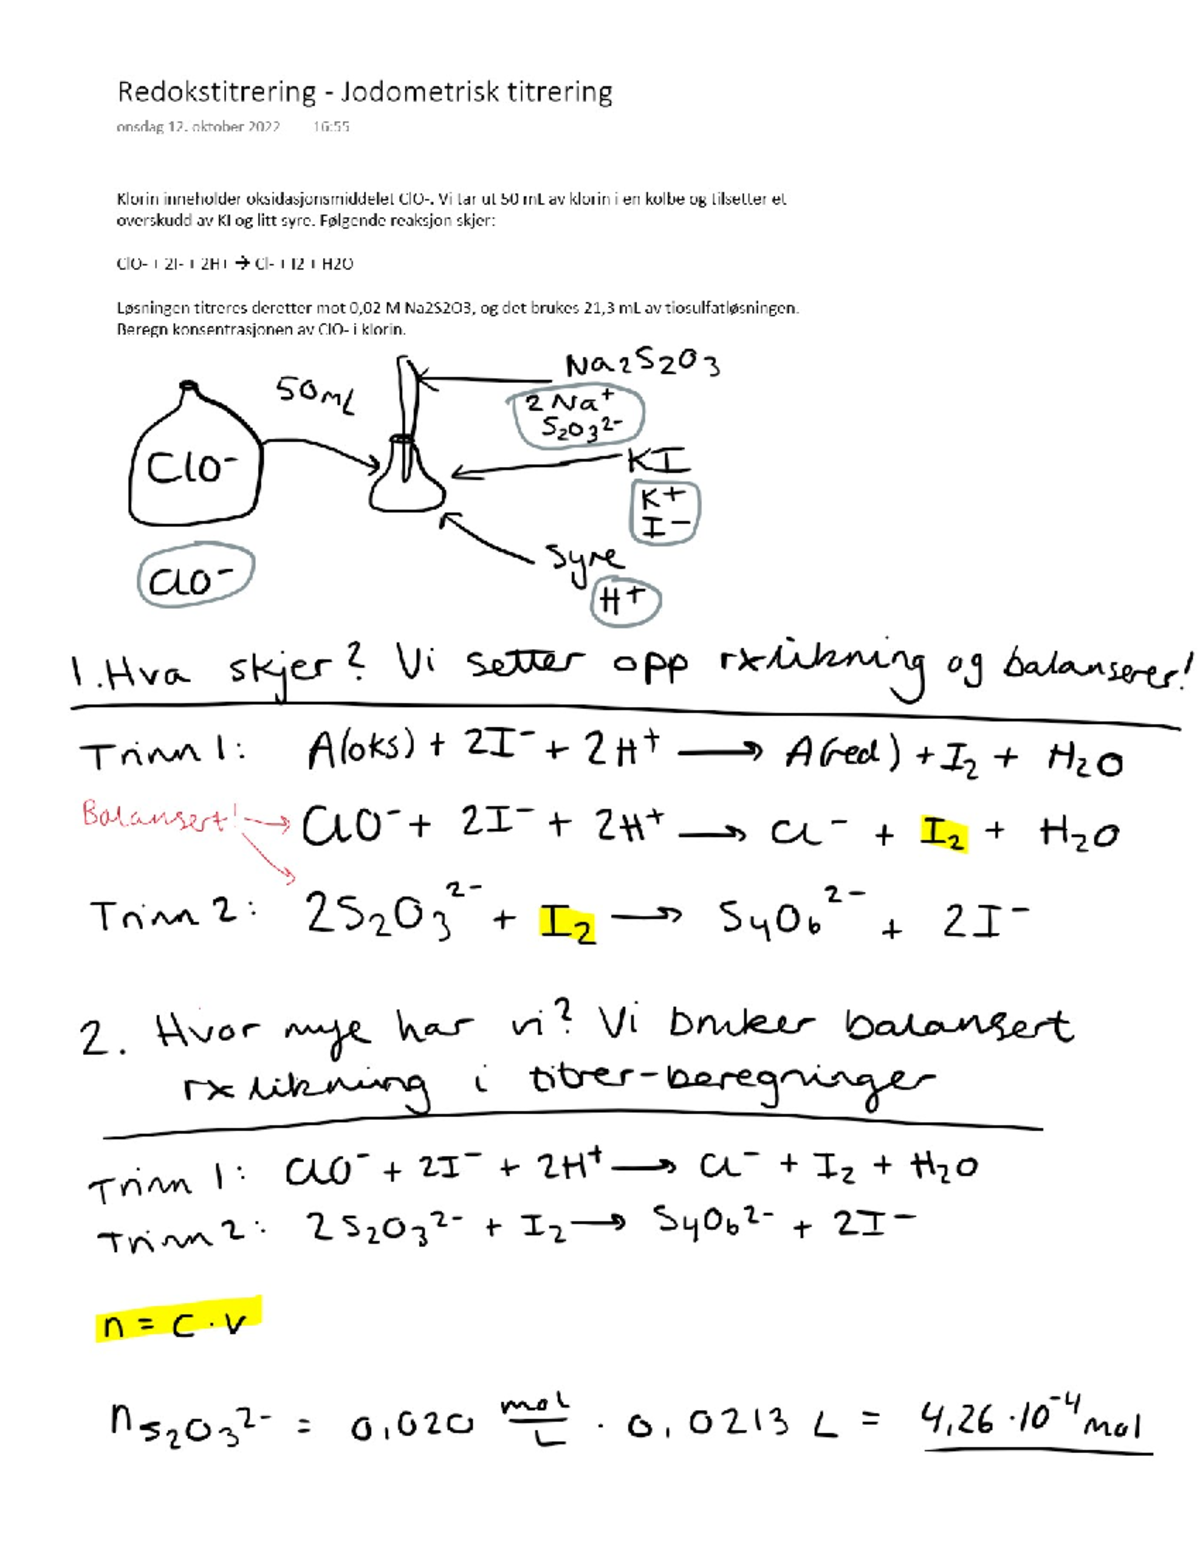 Redokstitrering - Jodometrisk titrering
onsdag 12. oktober 2022 16:55
Klorin inneholder oksidasjonsmiddelet ClO-. Vi tar ut 50 mL av klorin i en kolbe og tilsetter et
overskudd av KI og litt syre. Følgende reaksjon skjer:
ClO- + 2I- + 2H+ → Cl- + I2 + H2O
Løsningen titreres deretter mot 0,02 M Na2S2O3, og det brukes 21,3 mL av tiosulfatløsningen.
Beregn konsentrasjonen av ClO- i klorin.
Na2S2O3
50mL
2 Na⁺
S₂O₃²⁻
ClO⁻
KI
K+
I⁻
Syre
ClO⁻
H+
1. Hva skjer? Vi setter opp rxlikning og balanserer!
Trinn 1: A(oks) + 2I⁻ + 2H⁺ → A(red) + I₂ + H₂O
Balansert! → ClO⁻ + 2I⁻ + 2H⁺ → Cl⁻ + I₂ + H₂O
Trinn 2: 2S₂O₃²⁻ + I₂ → S₄O₆²⁻ + 2I⁻
2. Hvor mye har vi? Vi bruker balansert
rxlikning i titrer-beregninger
Trinn 1: ClO⁻ + 2I⁻ + 2H⁺ → Cl⁻ + I₂ + H₂O
Trinn 2: 2S₂O₃²⁻ + I₂ → S₄O₆²⁻ + 2I⁻
n = c · v
nS₂O₃²⁻ = 0,020 mol/L · 0,0213 L = 4,26 · 10⁻⁴ mol